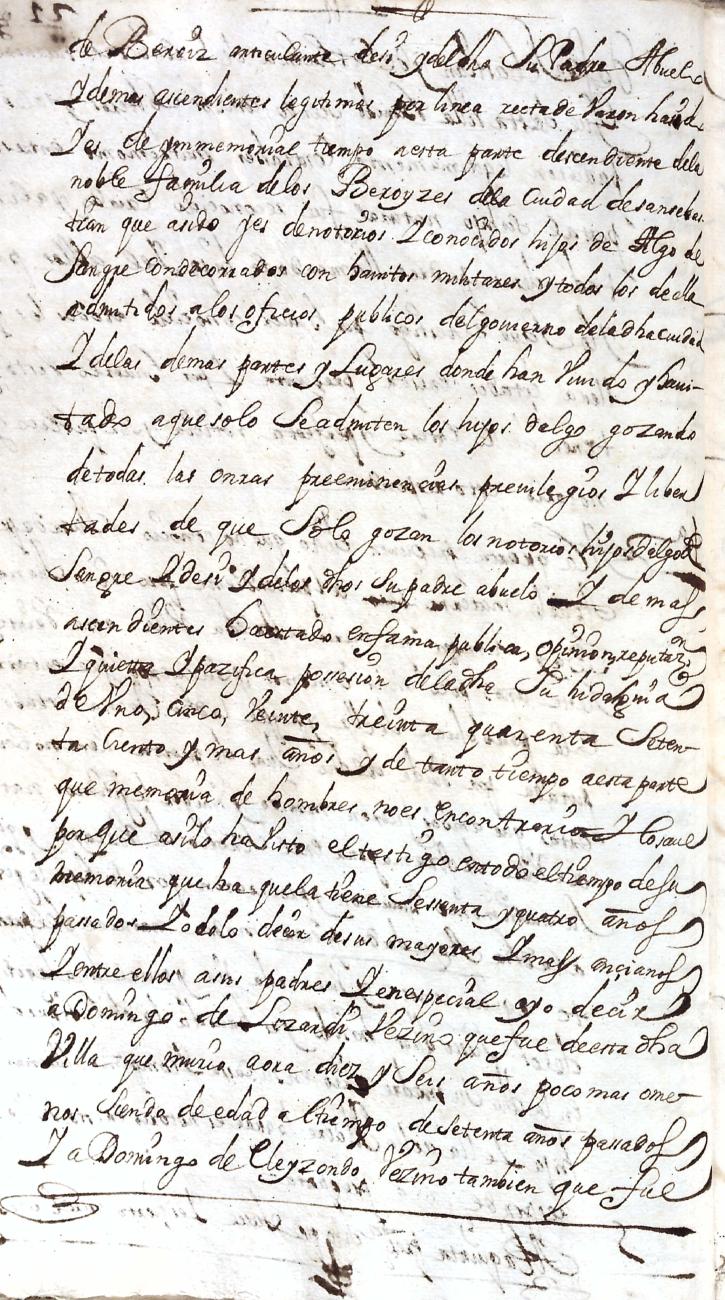 de Beroiz articulante desi y dela dha Su Padre Abuelo
Y demas ascendientes legitimos por linea recta de Varon hasido
Yes de ymmemorial tiempo aesta parte descendiente dela
noble familia delos Beroyzes dela Ciudad desansebas
tian que asido yes denotorios Y conocidos hijos de Algo de
Sangre condecorrados con hauitos militares y todos los de ella
admitidos alos oficios publicos del gouierno deladha ciudad
Y delas demas partes y Lugares donde han Viuido y haui-
tado aquesolo Seadmiten los hijos dalgo gozando
detodas las onras preeminencias preuilegios Y liber
tades de que Solo gozan los notorios hijos Dalgo de
Sangre Y desi Y delos dhos Su padre abuelo Y demas
ascendientes enfama publica, opinion, reputaz.on
Y quietta Y pazifica possesion deladha Su hidalguia
de Uno, cinco, Veinte, treinta quarenta Seten-
ta Ciento y mas años y de tanto tiempo aesta parte
que memoria de hombres noes encontrario Y losaue
porque asilo havisto eltestigo entodo eltiempo desu
memoria que ha quela tiene Sesenta yquatro años
passados Y odolo decir desus mayores Y mas ancianos
Y entre ellos asus padres Y enespecial oyo decir
a Domingo de Lizardi Vezino quefue deesta dha
Villa que murio aora diez y Seis años poco mas ome
nos siendo de edad altiempo desetenta años passados
Y a Domingo de Eleyzondo Vezino tambien que fue